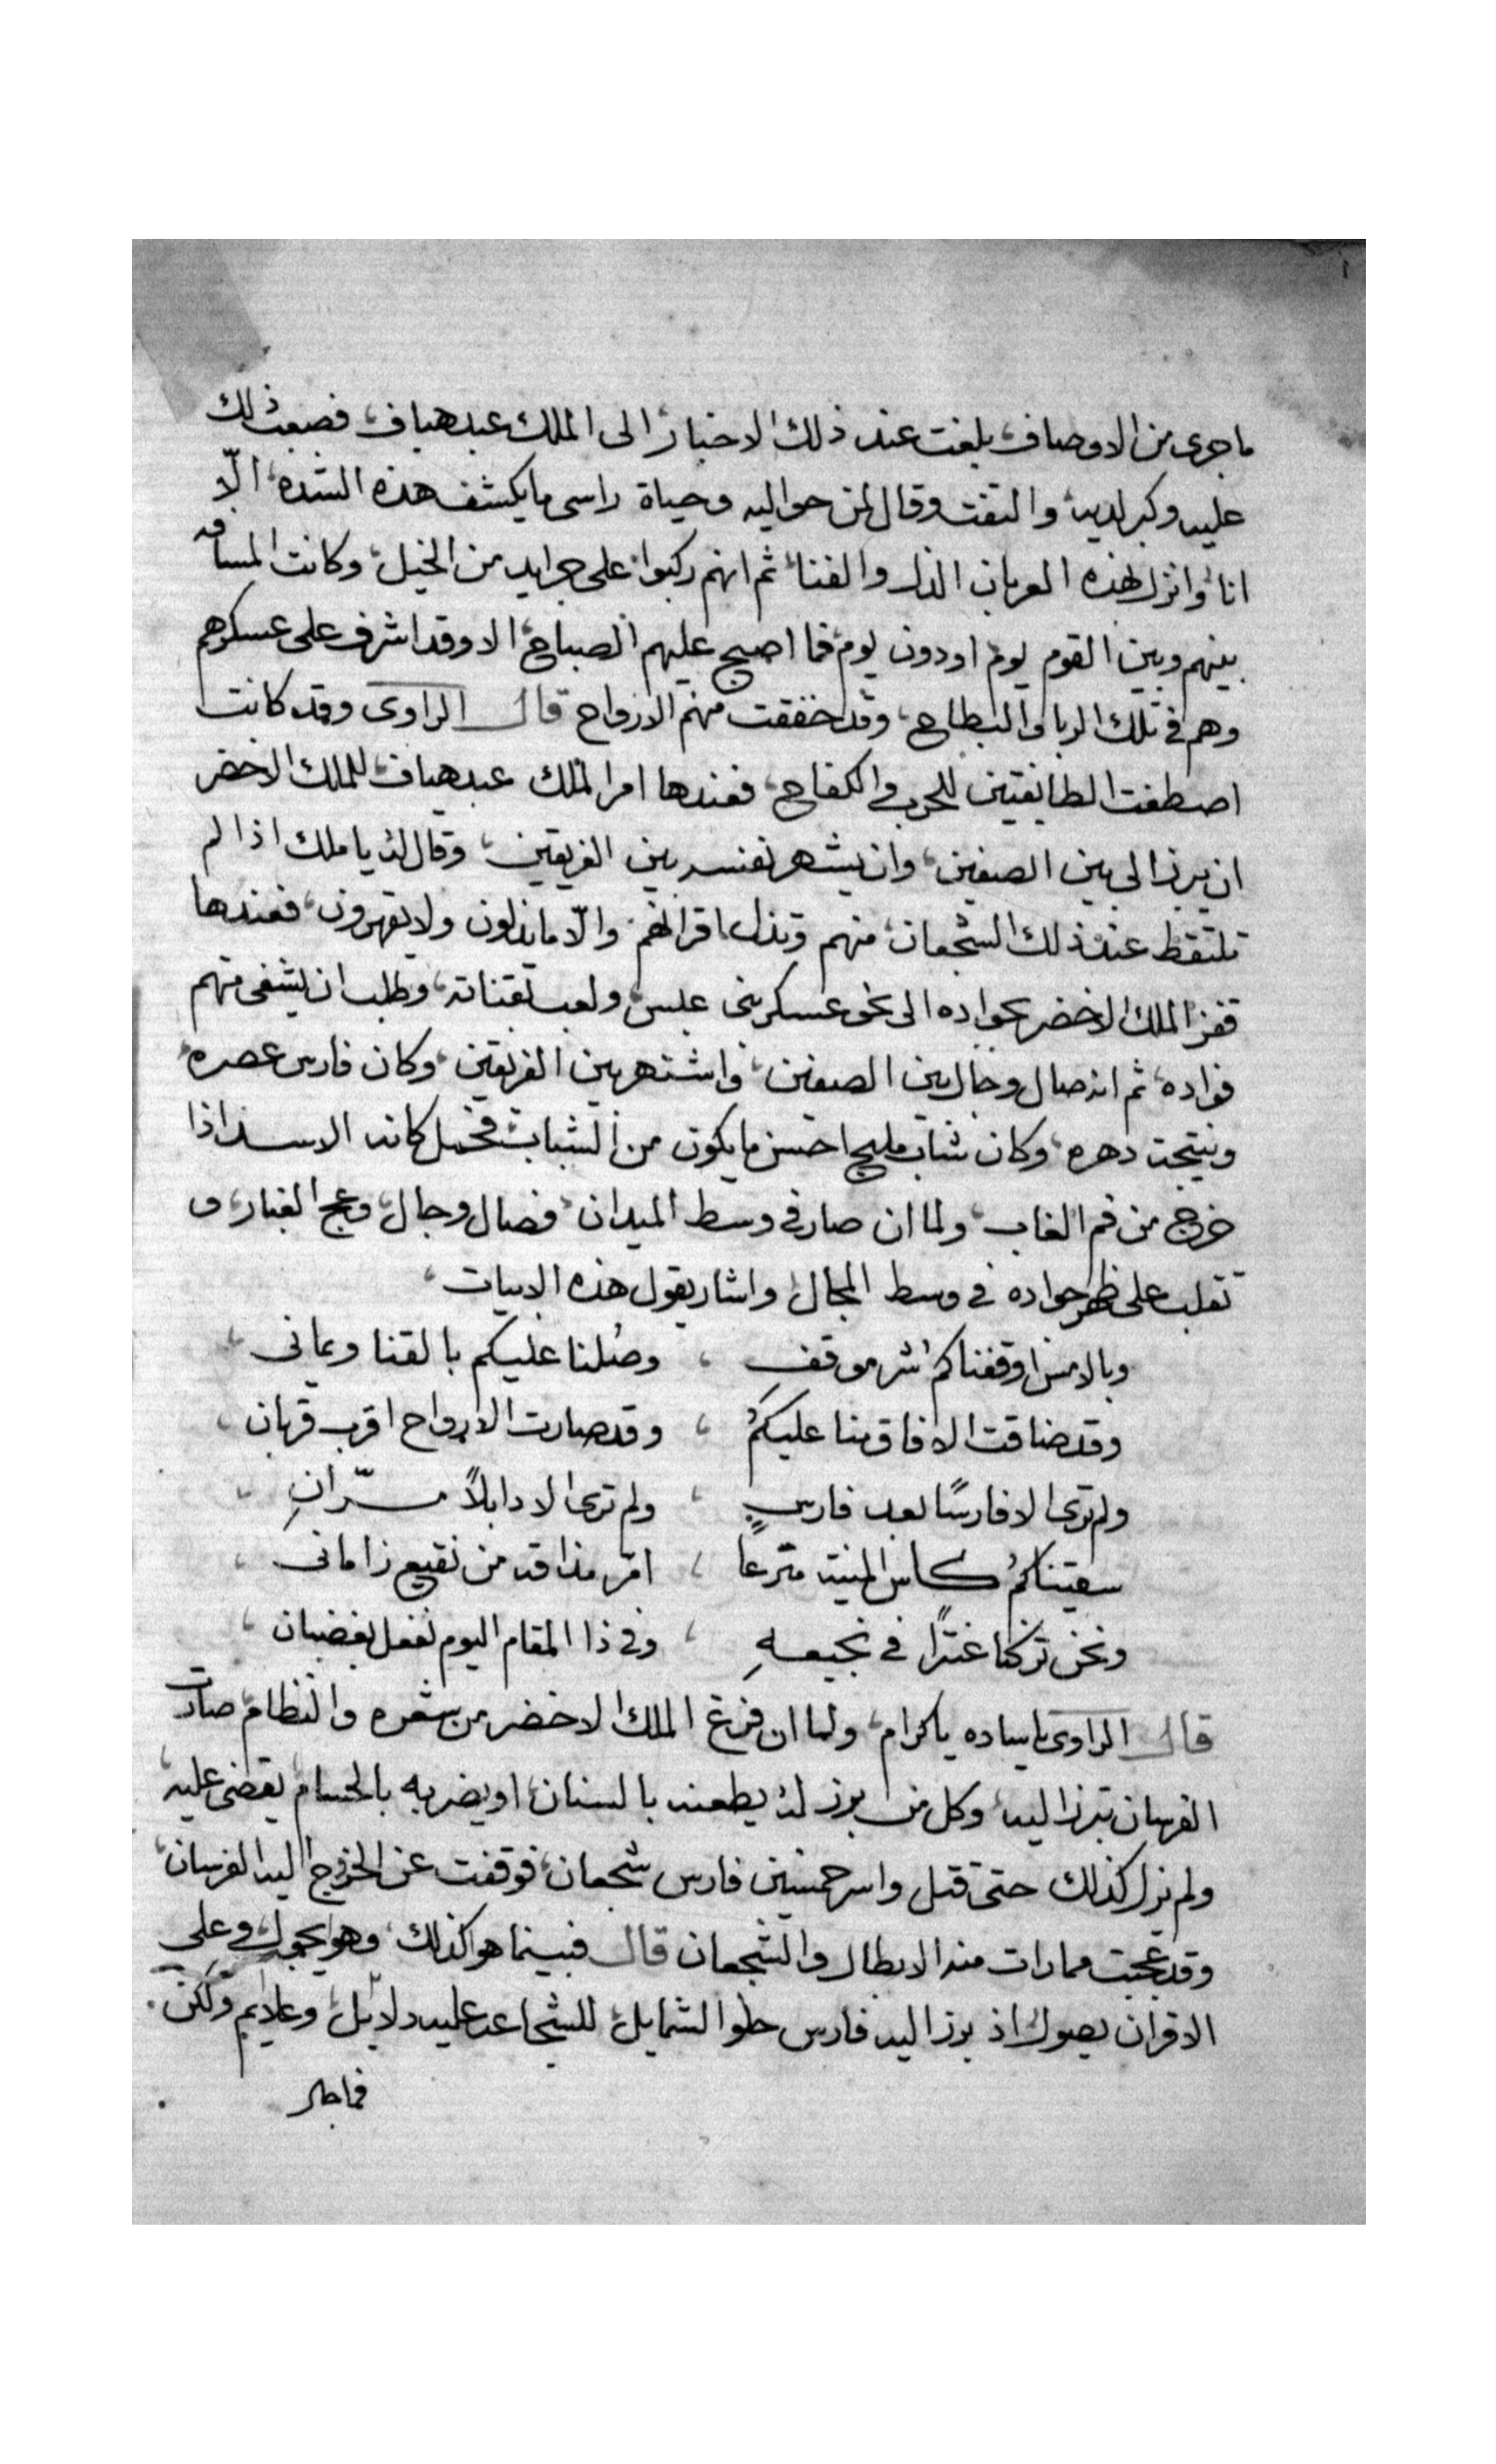 ما جرى من الاوصاف، بلغت عند ذلك الاخبار، الى الملك عبد هياف، فصعب ذلك
عليه وكبر لديه، والتفت وقال لمن حواليه وحياة راسي ما يكشف هذه الشده، الّا
انا، وانزل لهذه العربان الذل والفنا، ثم انهم ركبوا، على جرايد من الخيل، وكانت المسافه
بينهم وبين القوم يوم، او دون يوم، فما اصبح عليهم الصباح، الا وقد اشرف على عسكرهم
وهم في تلك الربا والبطاح، وقد خفقت منهم الارواح قال الراوى وقد كانت
اصطفت الطايفتين للحرب والكفاح، فعندها امر الملك عبد هياف، للملك الاخضر
ان يبرز الى بين الصفين، وان يشهر نفسه بين الفريقين، وقال له يا ملك اذا لم
تلتقط عند ذلك الشجعان، منهم وتذل اقرانهم، والّا ما يذلون ولا يقهرون، فعندها
قفز الملك الاخضر بجواده الى نحو عسكر بنى عبس، ولعب بقناته، وطلب ان يشفى منهم
فواده، ثم انه صال وجال بين الصفين، واشتهر بين الفريقين، وكان فارس عصره،
ونتيجت دهره، وكان شاب مليح احسن ما يكون من الشباب، فحمل كانه الاسد اذا
خرج من فم الغاب، ولما ان صار في وسط الميدان، فصال وجال، وعج الغبار، و
تقلب على ظهر جواده في وسط المجال، واشار يقول هذه الابيات،
وبالامس اوقفناكم شر موقف ، وصُلنا عليكم بالقنا ويمانى ،
وقد ضاقت الافاق منا عليكمُ ، وقد صارت الارواح اقرب قربان ،
ولم ترى الا فارسًا بعد فارسٍ ، ولم ترى الا دابلاً مرّانِ ،
سقيناكمُ كاس المنيه مترعا ، امرّ مذاقه من نقيع زامانى ،
ونحن تركنا عنترًا في نجيعهِ ، وفي ذا المقام اليوم نفعل بغضبان ،
قال الراوى يا ساده يا كرام، ولما ان فرغ الملك الاخضر من شعره والنظام، صارت
الفرسان تبرز اليه، وكل من برز له، يطعنه بالسنان، او يضربه بالحسام، يقضى عليه،
ولم يزل كذلك حتى قتل واسر خمسين فارس شجعان، فوقفت عن الخروج اليه الفرسان،
وقد عجبت مما رات منه الابطال والشجعان قال فبينما هو كذلك، وهو يجول، وعلى
الاقران يصول، اذ برز اليه فارس حلوا الشمايل، للشجاعه عليه دلائل، وعلايم ولكن